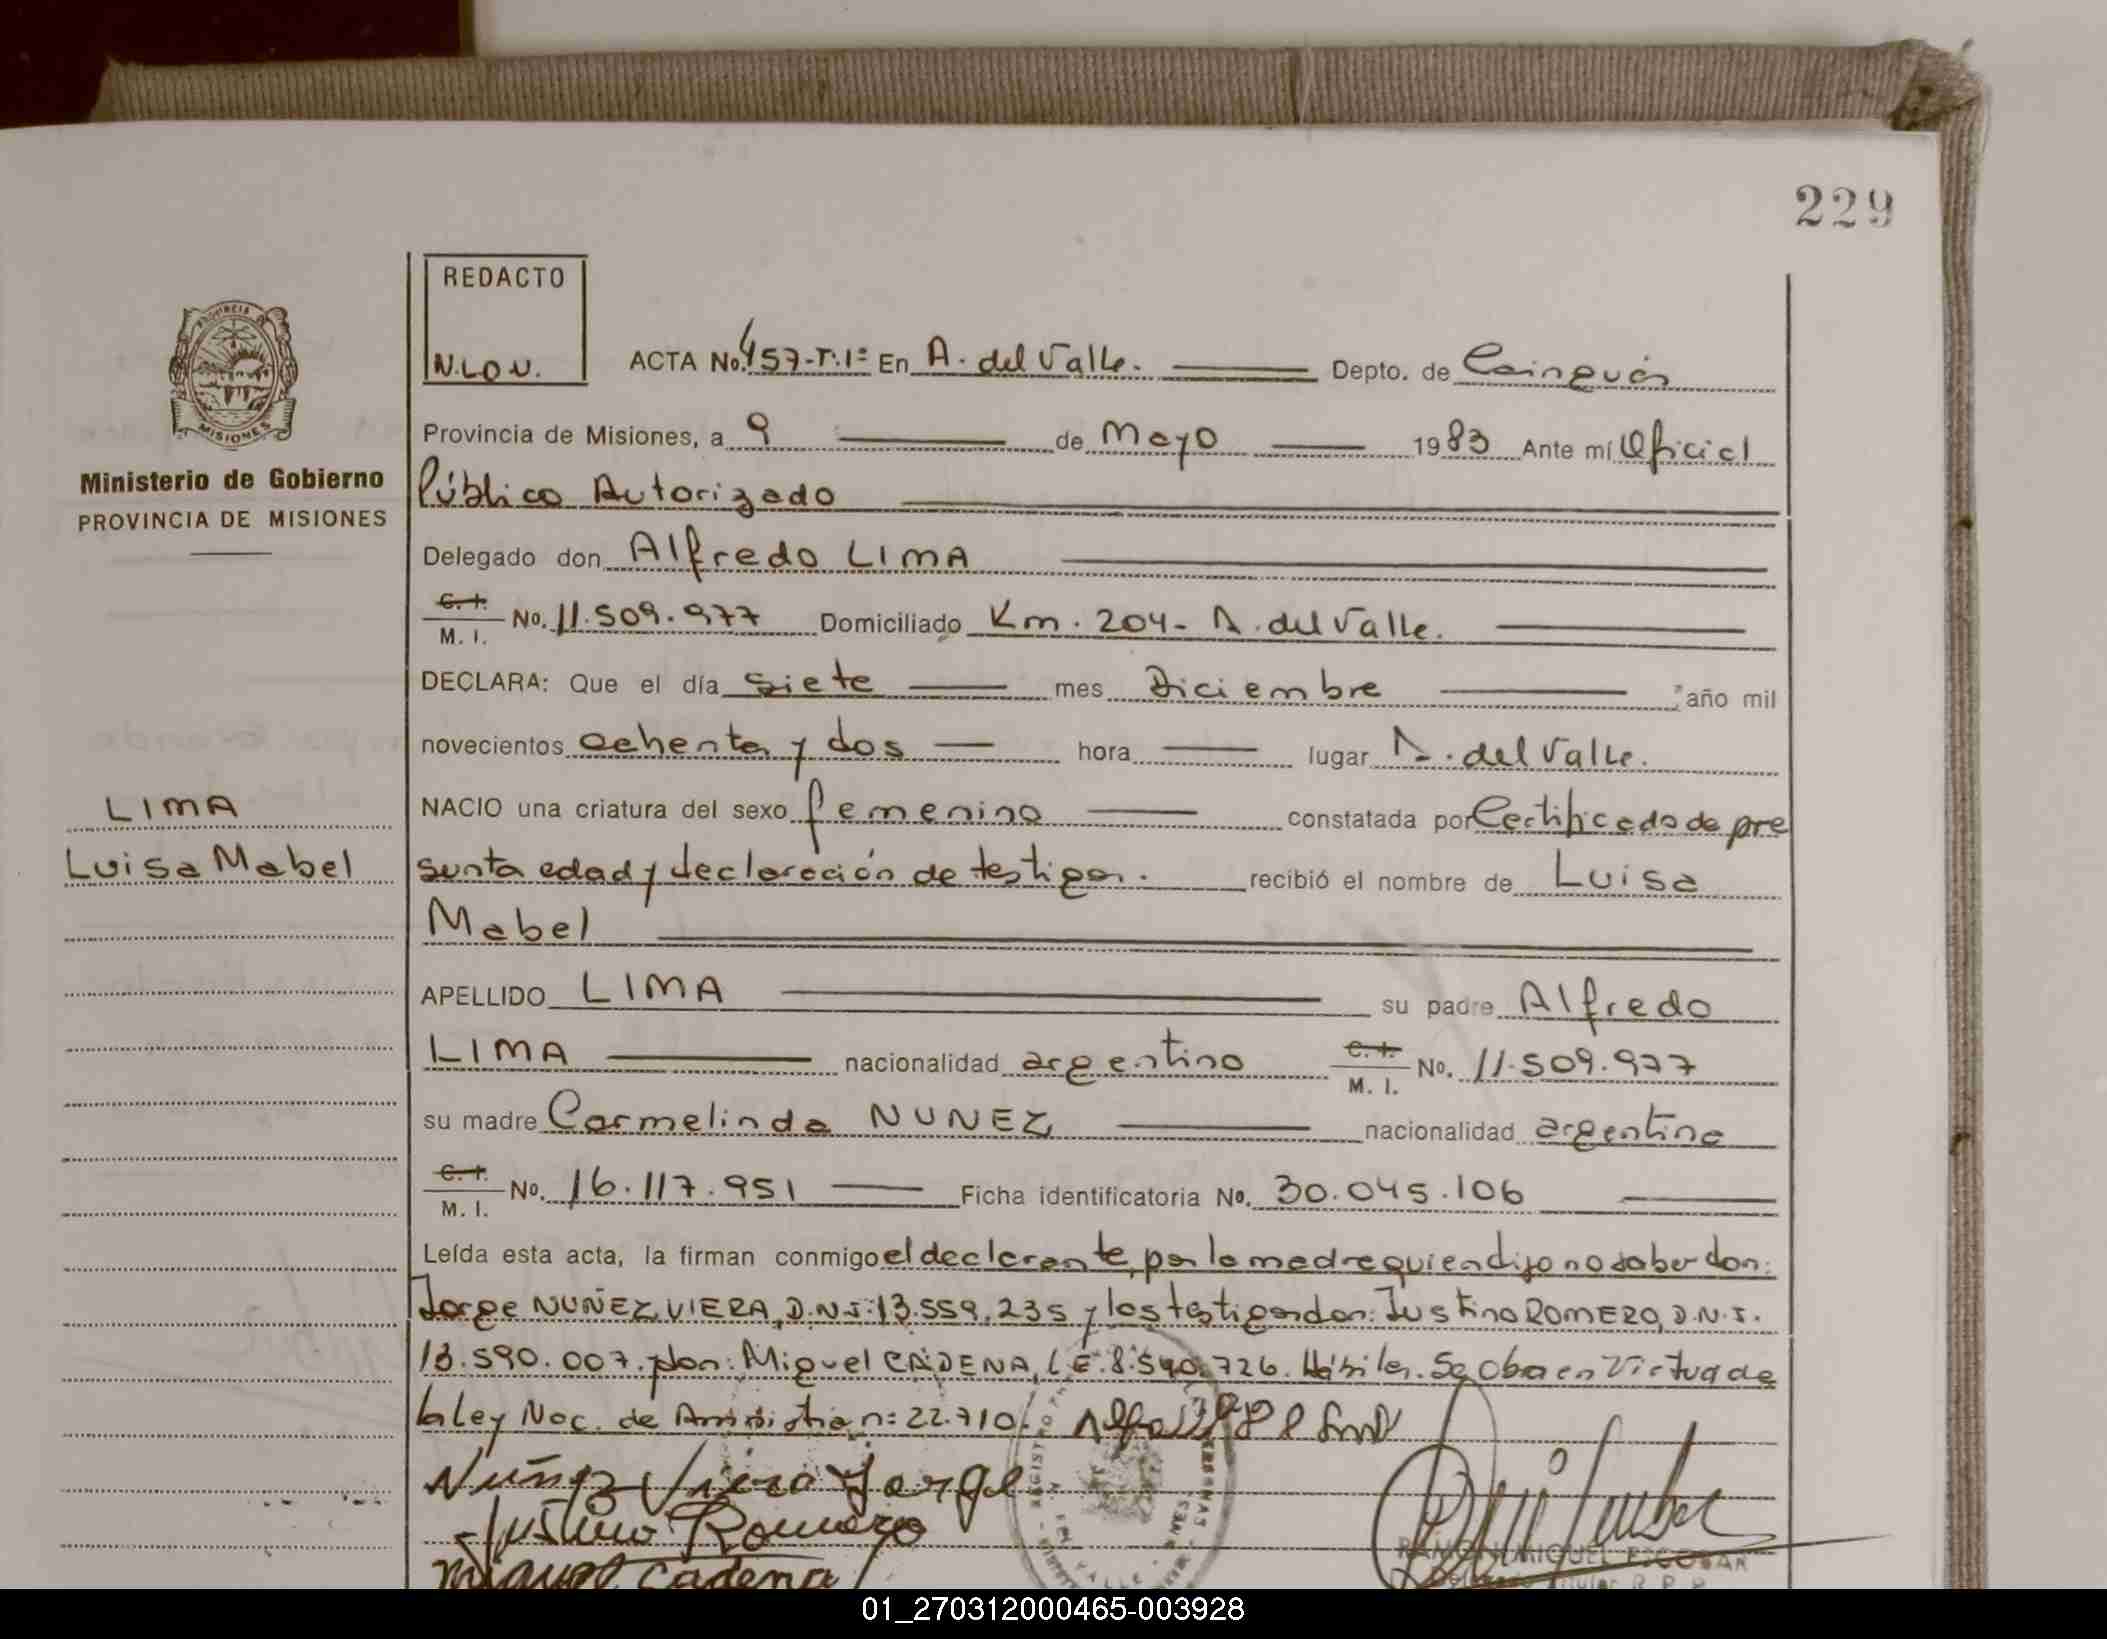 229
REDACTO
N.LO.V.
ACTA No. 457-T.1º En A. del Valle. Depto. de Cainguás
Provincia de Misiones, a 9 de Mayo 1983 Ante mí Oficial
Público Autorizado
Delegado don Alfredo LIMA
C. I. M. I. No. 11.509.977 Domiciliado Km. 204- A. del Valle.
DECLARA: Que el día siete mes Diciembre año mil
novecientos ochenta y dos hora lugar A. del Valle.
NACIO una criatura del sexo femenino constatada por Certificado de pre
sunta edad y declaración de testigos. recibió el nombre de Luisa
Mabel
APELLIDO LIMA su padre Alfredo
LIMA nacionalidad argentino C. I. M. I. No. 11.509.977
su madre Carmelinda NUNEZ nacionalidad argentina
C. I. M. I. No. 16.117.951 Ficha identificatoria No. 30.045.106
Leída esta acta, la firman conmigo el declarante, por la madre quien dijo no saber don:
Jorge NUÑEZ VIERA, D.N.I. 13.559.235 y los testigos don: Justino ROMERO, D.N.I.
13.590.007. y don: Miguel CADENA, L.E. 8.540.726. Hábiles. Se obra en Virtud de
la Ley Nac. de Amnistia nº 22.710/.
Nuñez Viera Jorge
Justino Romero
Miguel Cadena
RAMON MIGUEL ESCOBAR
PROVINCIA
MISIONES
Ministerio de Gobierno
PROVINCIA DE MISIONES
LIMA
Luisa Mabel
01_270312000465-003928